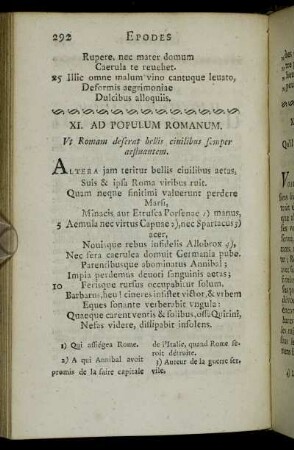 292 EPODES
Rupere, nec mater domum
Caerula te reuehet.
25 Illic omne malum vino cantuque leuato,
Deformis aegrimoniae
Dulcibus alloquiis.
XI. AD POPULUM ROMANUM.
Vt Romam deserat bellis ciuilibus semper
aestuantem.
ALTERA jam teritur bellis ciuilibus aetas,
Suis & ipsa Roma viribus ruit.
Quam neque finitimi valuerunt perdere
Marsi,
Minacis aut Etrusca Porsenae 1) manus,
5 Aemula nec virtus Capuae 2), nec Spartacus 3)
acer,
Nouisque rebus infidelis Allobrox 4),
Nec fera caerulea domuit Germania pube,
Parentibusque abominatus Annibal;
Impia perdemus deuoti sanguinis aetas;
10 Ferisque rursus occupabitur solum.
Barbarus, heu! cineres insistet victor, & vrbem
Eques sonante verberabit vngula:
Quaeque carent ventis & solibus, ossa Quirini,
Nefas videre, dissipabit insolens.
1) Qui assiégea Rome.
2) A qui Annibal avoit
promis de la faire capitale
de l'Italie, quand Rome se-
roit détruite.
3) Auteur de la guerre ser-
vile.